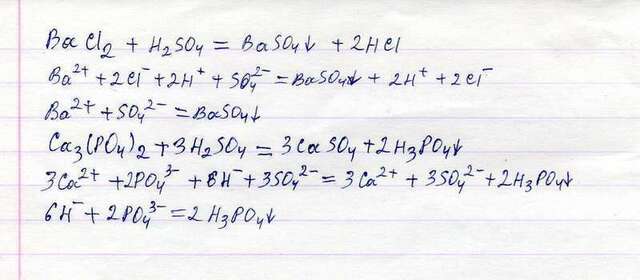 BaCl₂ + H₂SO₄ = BaSO₄↓ + 2HCl
Ba²⁺ + 2Cl⁻ + 2H⁺ + SO₄²⁻ = BaSO₄↓ + 2H⁺ + 2Cl⁻
Ba²⁺ + SO₄²⁻ = BaSO₄↓
Ca₃(PO₄)₂ + 3H₂SO₄ = 3CaSO₄ + 2H₃PO₄↓
3Ca²⁺ + 2PO₄³⁻ + 6H⁻ + 3SO₄²⁻ = 3Ca²⁺ + 3SO₄²⁻ + 2H₃PO₄↓
6H⁻ + 2PO₄³⁻ = 2H₃PO₄↓